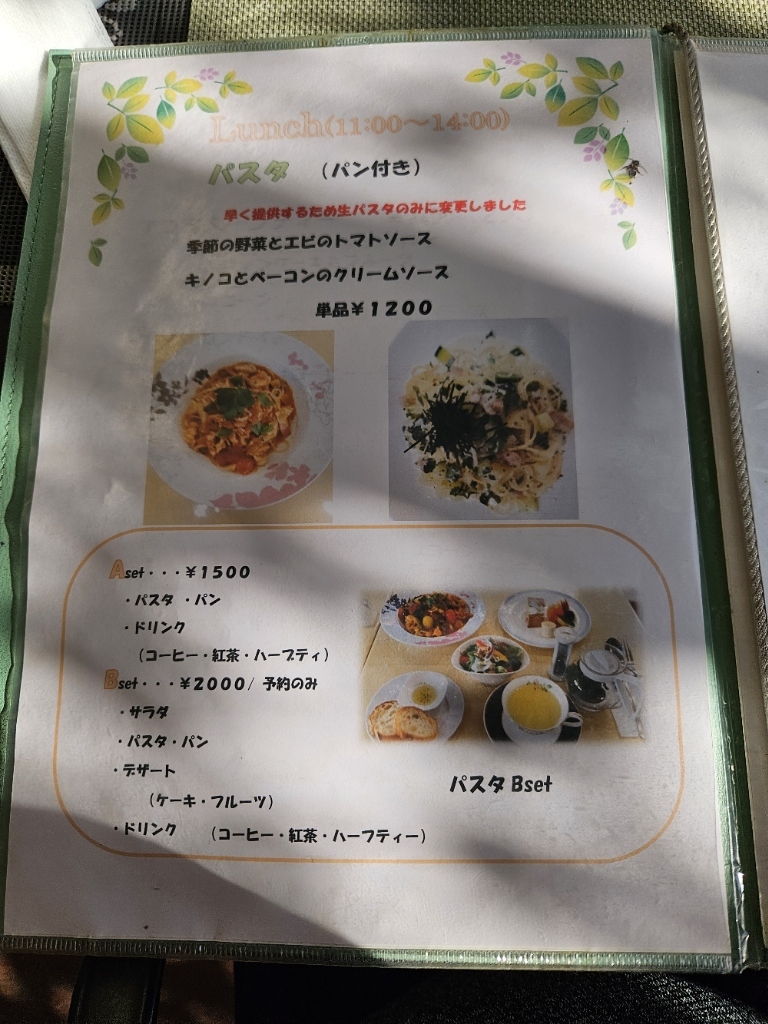 Lunch(11:00～14:00)
パスタ （パン付き）
早く提供するため生パスタのみに変更しました
季節の野菜とエビのトマトソース
キノコとベーコンのクリームソース
単品￥１２００
Aset・・・￥１５００
・パスタ ・パン
・ドリンク
（コーヒー・紅茶・ハーブティ）
Bset・・・￥２０００/ 予約のみ
・サラダ
・パスタ・パン
・デザート
（ケーキ・フルーツ）
・ドリンク （コーヒー・紅茶・ハーブティー）
パスタ Bset